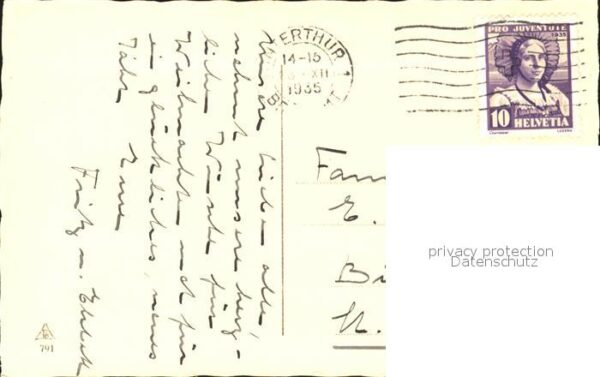 Unsere Lieben alle,
nehmt unsere herz-
lichen Wünsche für
Weihnachten und für
ein glückliches, neues
Jahr. Eure
Fritz u.
WINTERTHUR 1
14-15
XII
1935
PRO JUVENTUTE
1935
10 HELVETIA
Courvoisier
LUZERN
Fam
E.
Bi
St.
privacy protection
Datenschutz
791